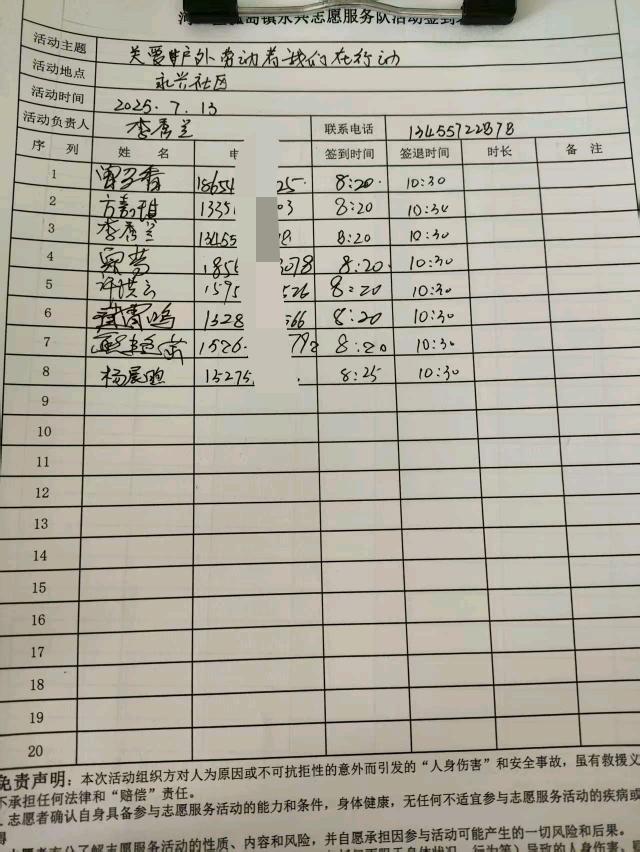 孤岛镇永兴志愿服务队活动签到表
活动主题 关爱户外劳动者我们在行动
活动地点 永兴社区
活动时间 2025.7.13
活动负责人 李秀兰 联系电话 13455722878
序 列 姓 名 电 签到时间 签退时间 时长 备 注
1 18654 25 8:20 10:30
2 方嘉琪 1335 03 8:20 10:30
3 李秀兰 13455 8:20 10:30
4 185 3078 8:20 10:30
5 许洪云 1595 526 8:20 10:30
6 1328 566 8:20 10:30
7 1526 79 8:20 10:30
8 杨展 15275 8:25 10:30
9
10
11
12
13
14
15
16
17
18
19
20
免责声明：本次活动组织方对人为原因或不可抗拒性的意外而引发的“人身伤害”和安全事故，虽有救援义
不承担任何法律和“赔偿”责任。
志愿者确认自身具备参与志愿服务活动的能力和条件，身体健康，无任何不适宜参与志愿服务活动的疾病或
得
志愿者充分了解志愿服务活动的性质、内容和风险，并自愿承担因参与活动可能产生的一切风险和后果。
行为等）导致的人身伤害、